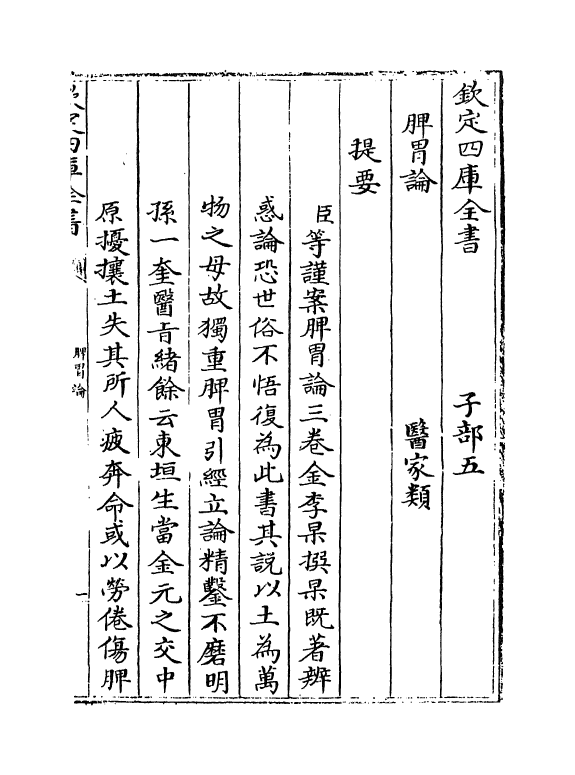 欽定四庫全書　子部五
脾胃論　醫家類
提要
臣等謹案脾胃論三卷金李杲撰杲既著辨
惑論恐世俗不悟復為此書其說以土為萬
物之母故獨重脾胃引經立論精鑿不磨明
孫一奎醫旨緒餘云東垣生當金元之交中
原擾攘土失其所人疲奔命或以勞倦傷脾
欽定四庫全書
脾胃論
一